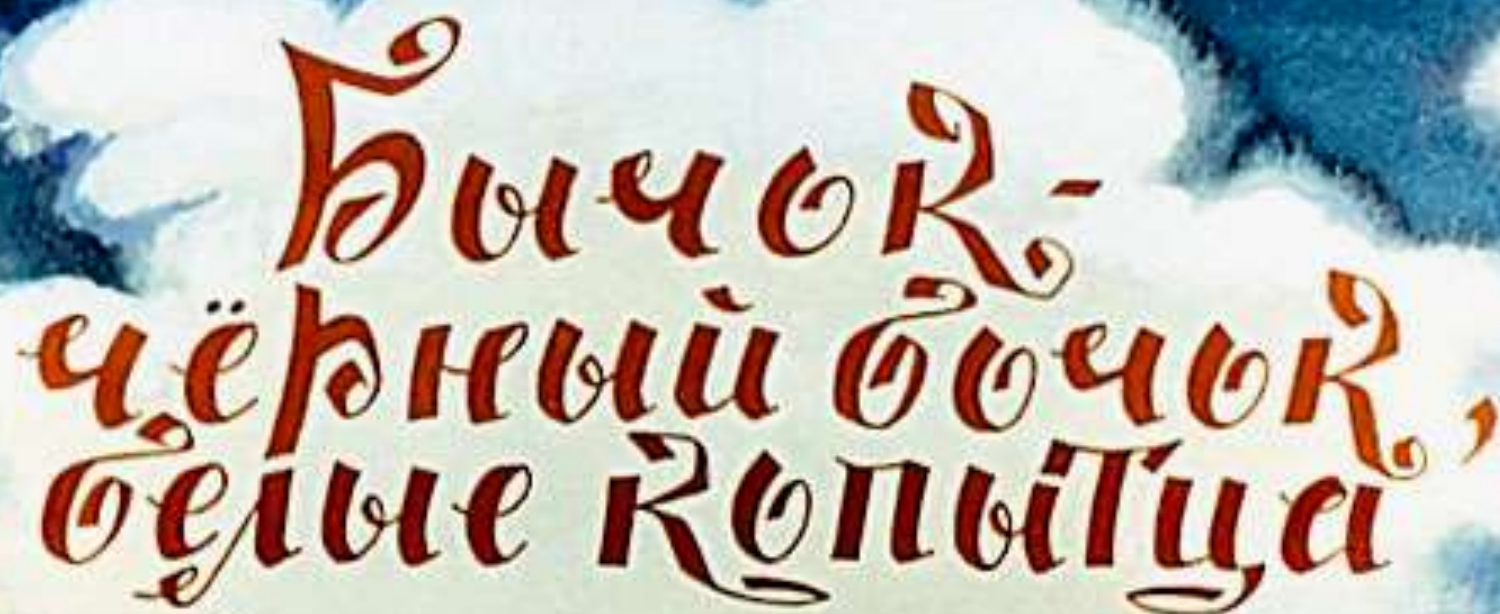 Бычок-
чёрный бочок,
белые копытца